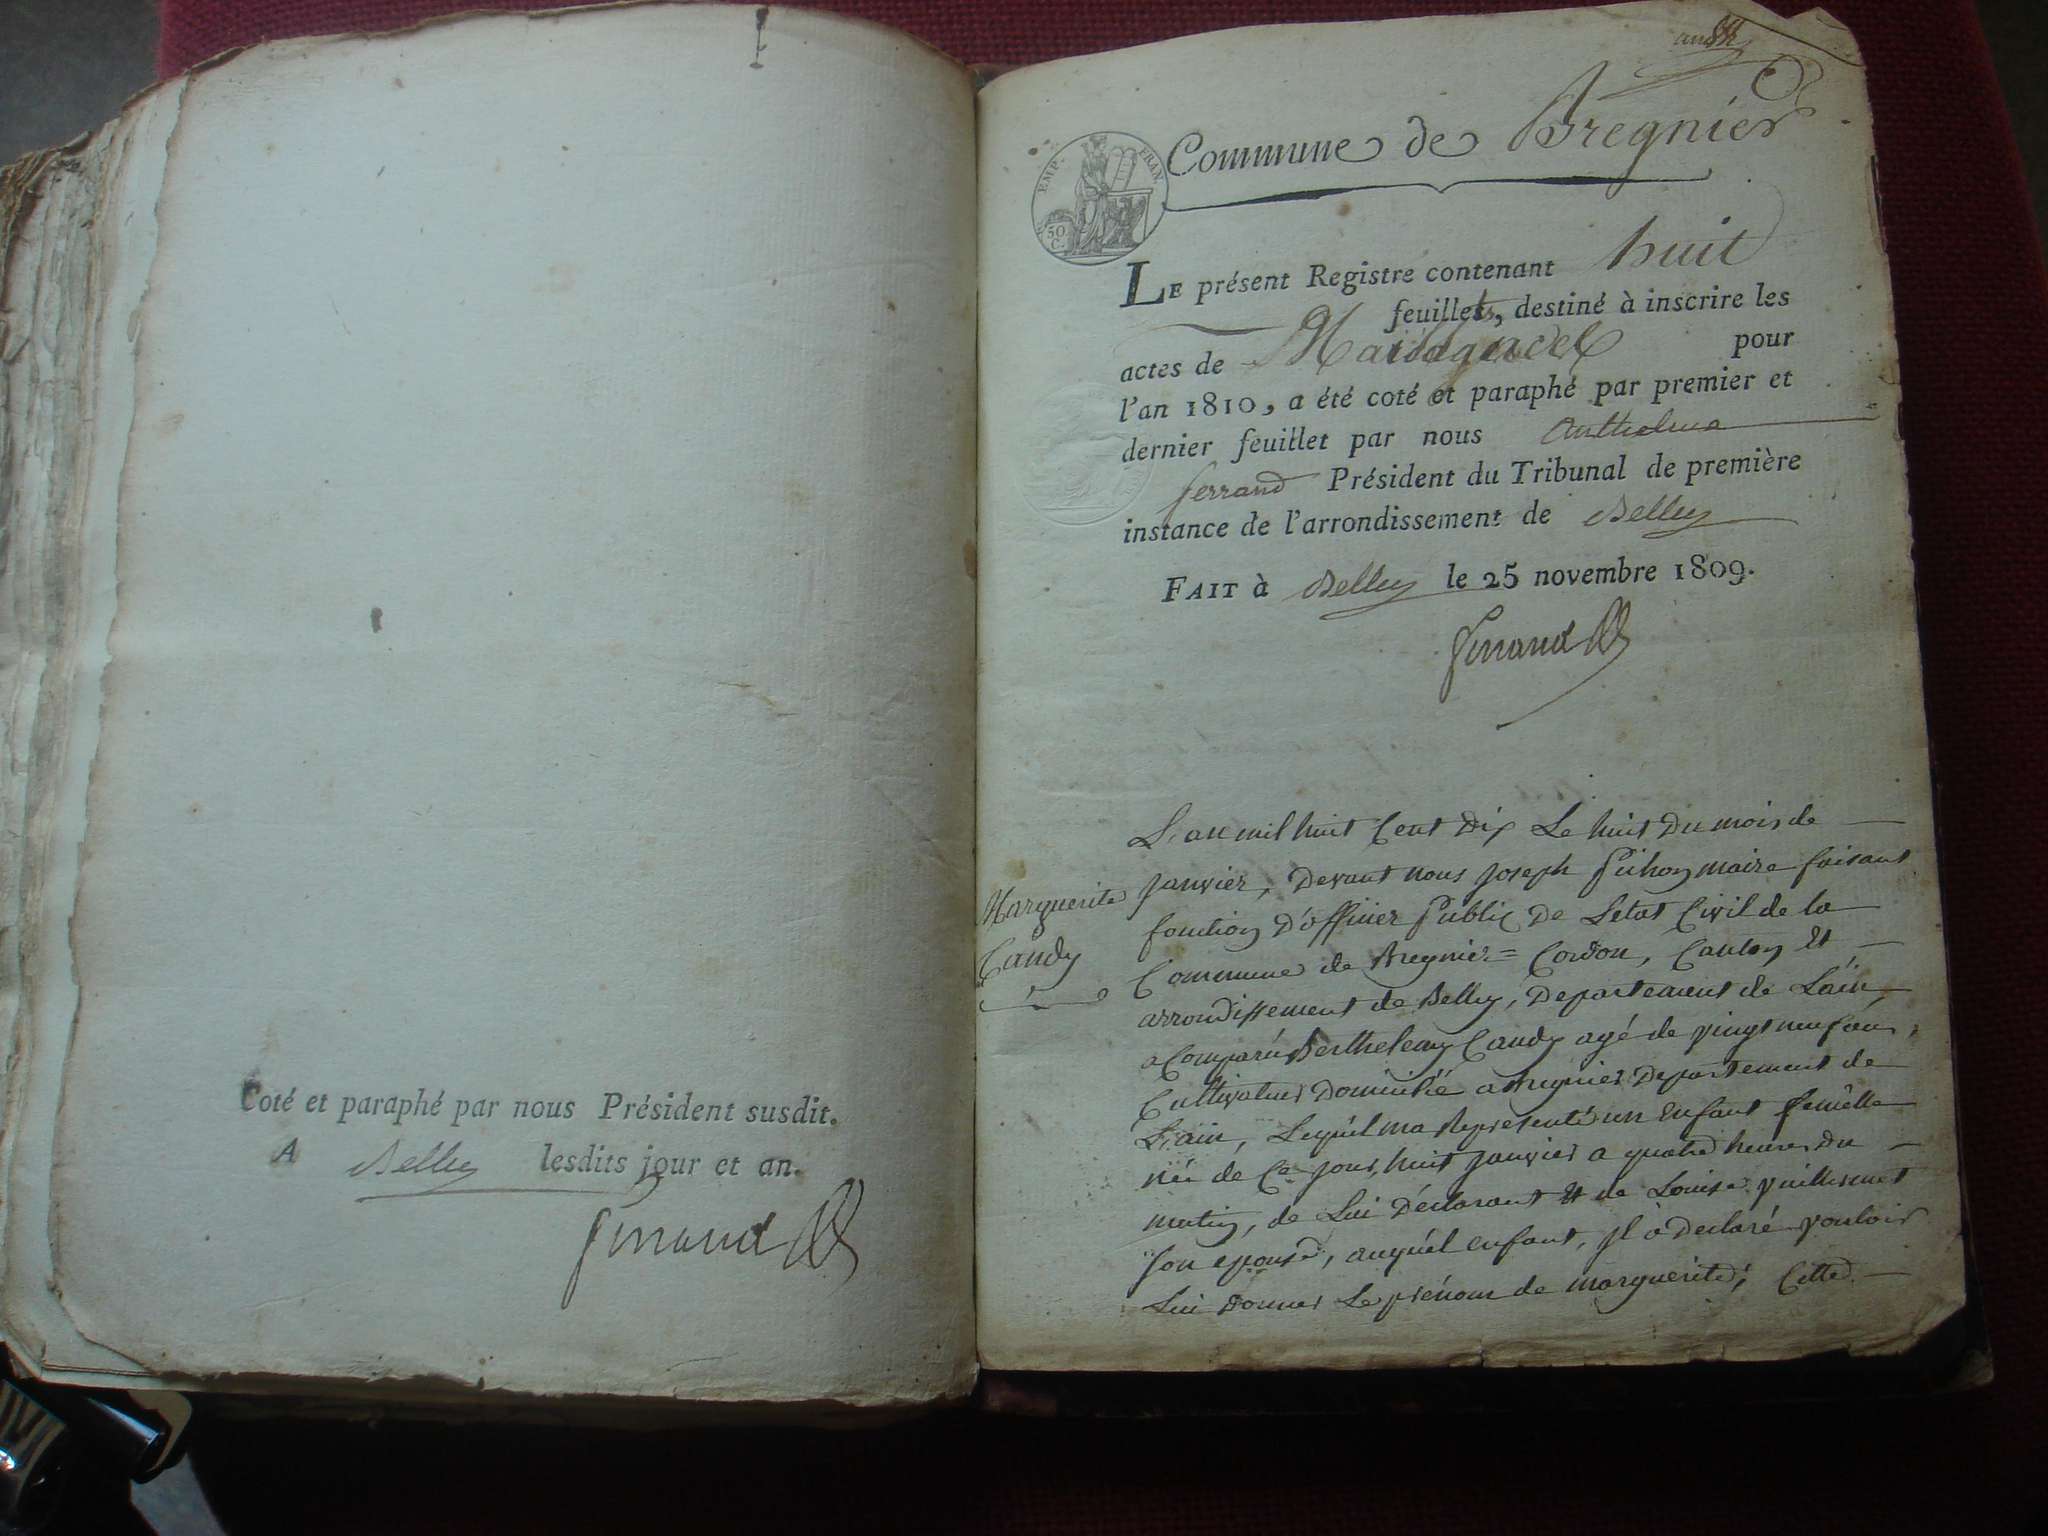 Coté et paraphé par nous Président susdit.
A Belley lesdits jour et an.
Ferrand
Commune de Bregnier
EMP. FRAN.
50 C.
LE présent Registre contenant huit
feuillets, destiné à inscrire les
actes de pour
l'an 1810, a été coté et paraphé par premier et
dernier feuillet par nous Anthelme
ferrand Président du Tribunal de première
instance de l'arrondissement de Belley
FAIT à Belley le 25 novembre 1809.
Ferrand
Marguerite
Candy
L'an mil huit Cent Dix Le huit Du mois de
Janvier, Devant nous Joseph maire faisant
fonction D'officier Public De Letat Civil de la
Commune de Bregnier = Cordon, Canton Et
arrondissement de Belley, Departement de Lain,
a Comparu Berthelemy Candy agé de vingt neuf ans,
Cultivateur Domicilié a Bregnier Departement de
L'ain, Lequel ma Representé un Enfant femelle
née de Ce jour, huit janvier a quatre heures du
matin, de Lui Déclarant Et de Louise vuillermet
son epouse, auquel enfant, il a Declaré vouloir
Lui donner Le prénom de marguerite; Cette